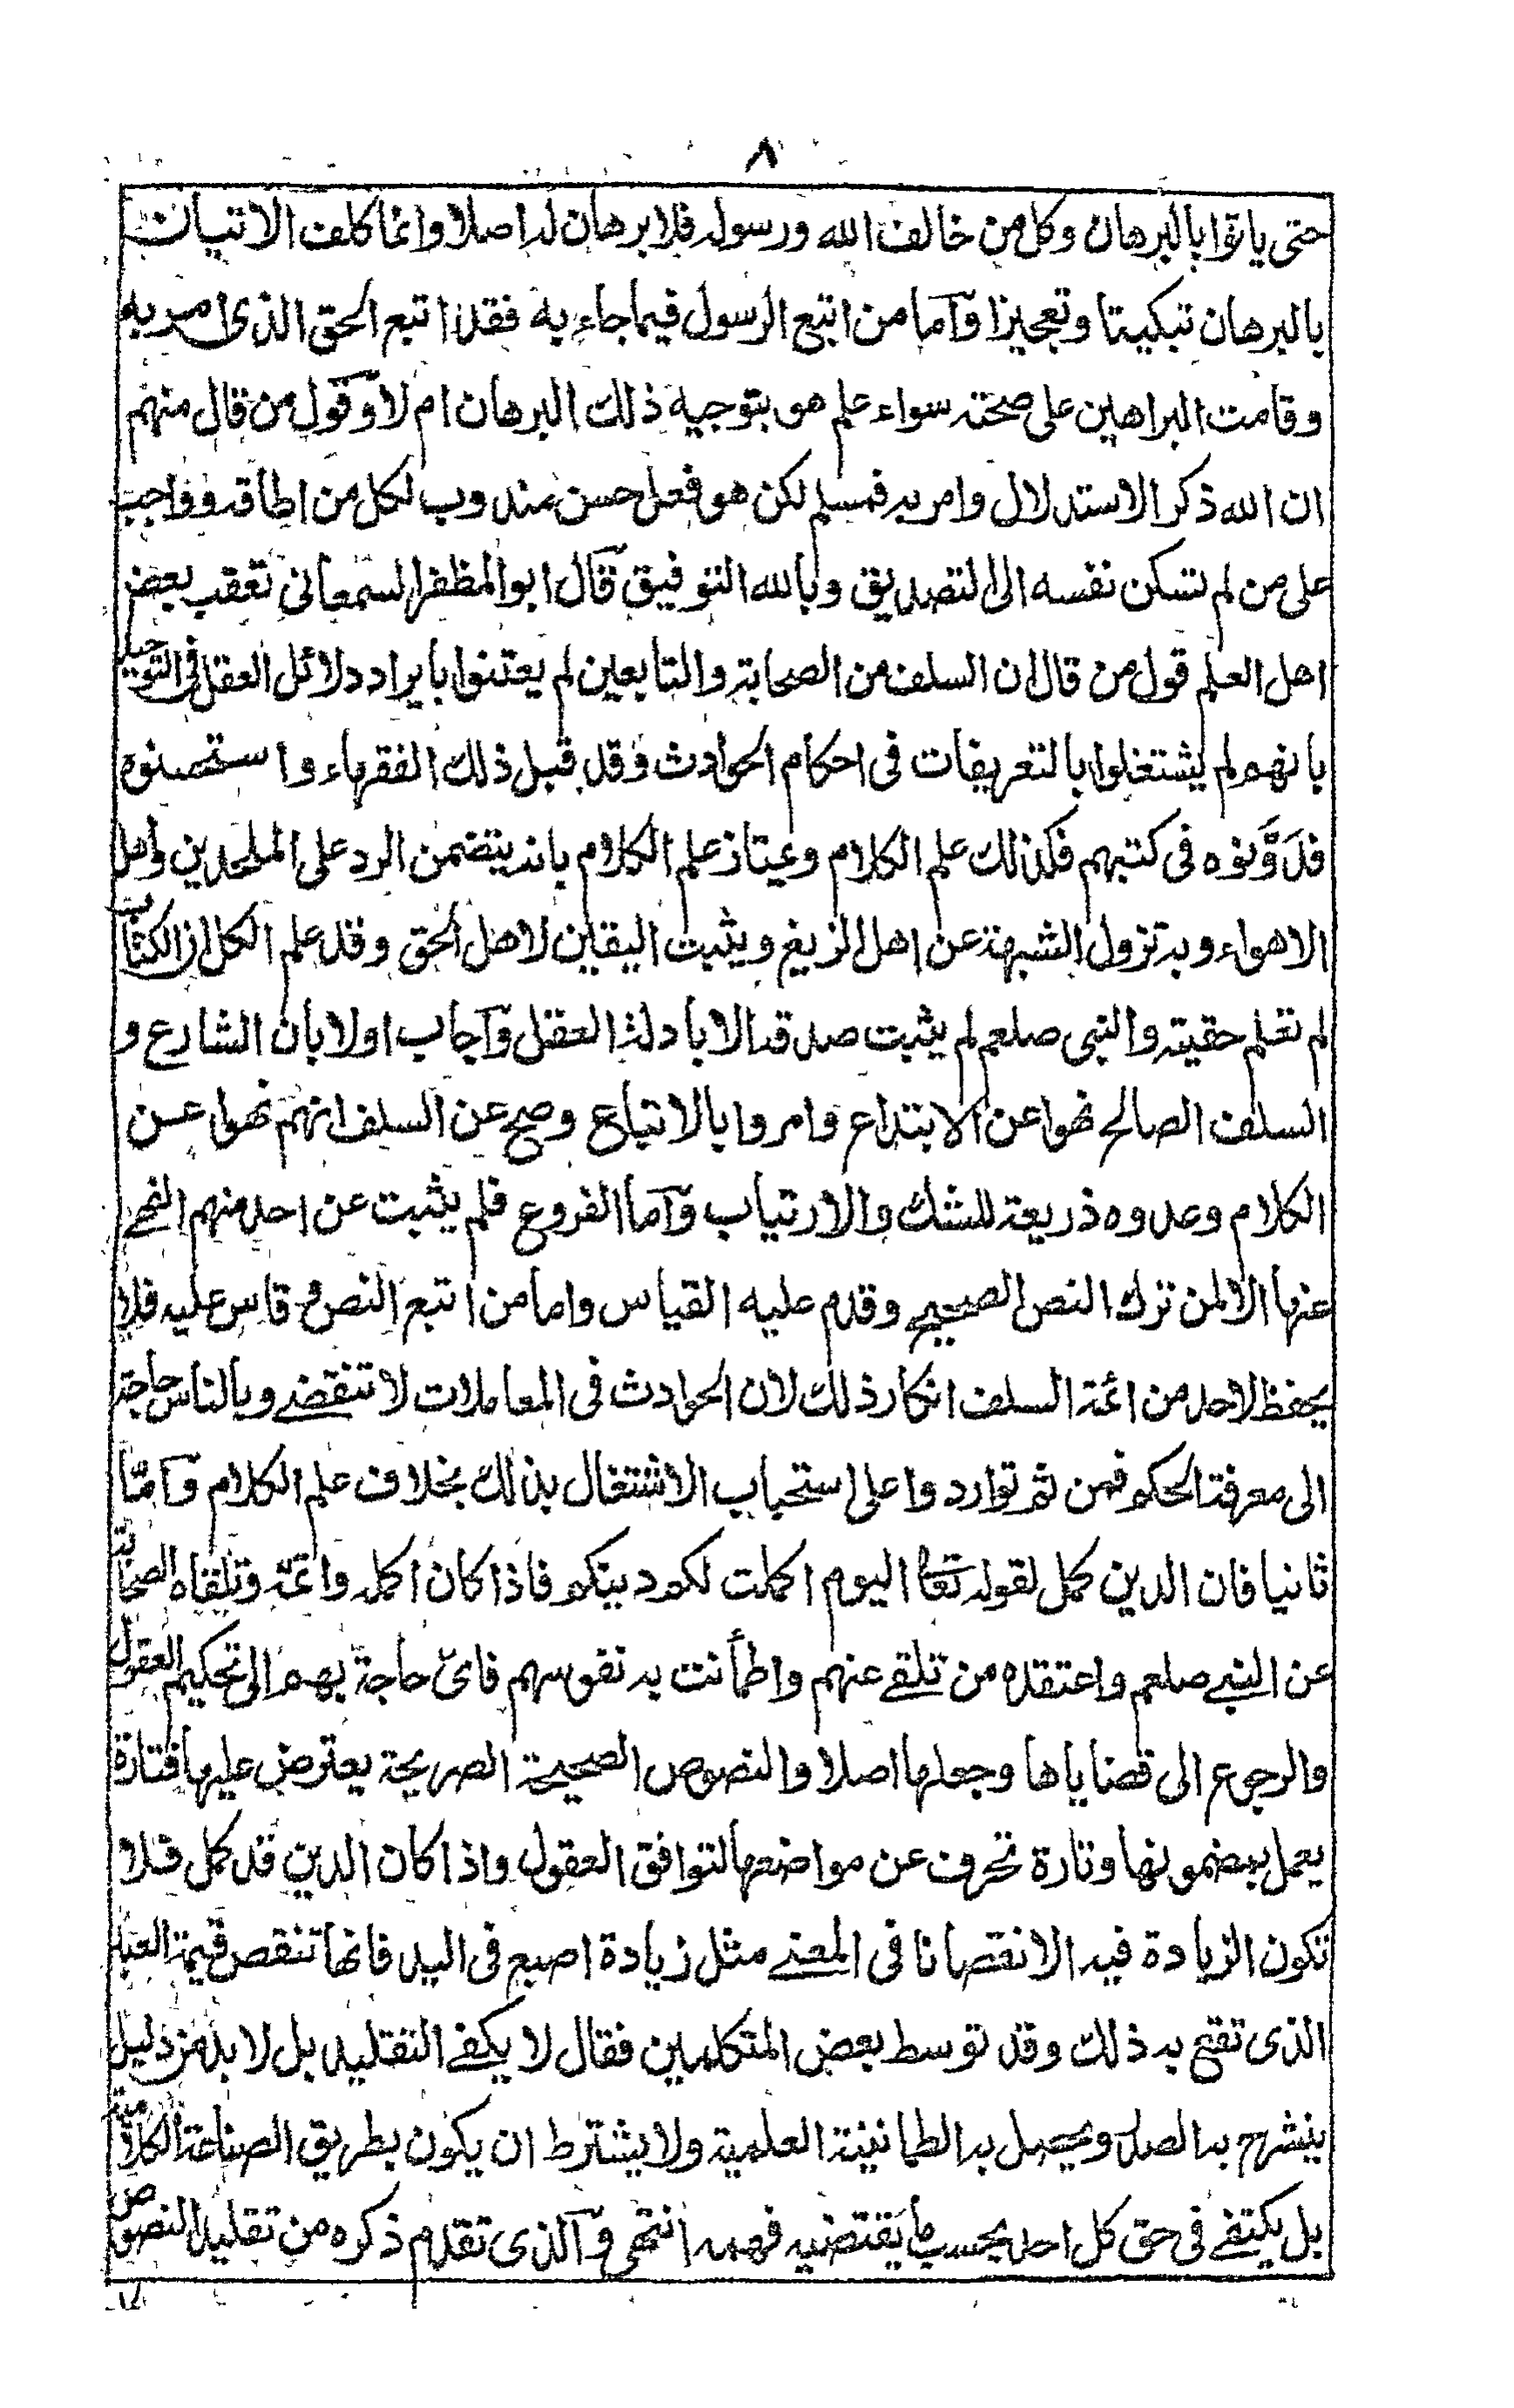 ٨
حتى ياتوا بالبرهان وكل من خالف الله ورسوله فلا برهان له اصلا وانما كلف الاتيان
بالبرهان تبكيتا وتعجيزا وآما من اتبع الرسول فيما جاء به فقد اتبع الحق الذى امر به
وقامت البراهين على صحته سواء علم هو بتوجيه ذلك البرهان ام لا وقول من قال منهم
ان الله ذكر الاستدلال وامر به فمسلم لكن هو فعل حسن مندوب لكل من اطاقه وواجب
على من لم تسكن نفسه الى التصديق وبالله التوفيق قال ابو المظفر السمعانى تعقب بعض
اهل العلم قول من قال ان السلف من الصحابة والتابعين لم يعتنوا بايراد دلائل العقل فى التوحيد
بانهم لم يشتغلوا بالتعريفات فى احكام الحوادث وقد قبل ذلك الفقهاء واستحسنوه
فدَوَّنوه فى كتبهم فكذلك علم الكلام ويمتاز علم الكلام بانه يتضمن الرد على الملحدين واهل
الاهواء وبه تزول الشبهة عن اهل الزيغ ويثبت اليقين لاهل الحق وقد علم الكل ان الكتاب
لم تعلم حقيته والنبى صلعم لم يثبت صدقه الا بادلة العقل وآجاب اولا بان الشارع و
السلف الصالح نهوا عن الابتداع وامروا بالاتباع وصح عن السلف انهم نهوا عن
الكلام وعدوه ذريعة للشك والارتياب وآما الفروع فلم يثبت عن احد منهم النهى
عنها الا لمن ترك النص الصحيح وقدم عليه القياس واما من اتبع النص وقاس عليه فلا
يحفظ لاحد من ائمة السلف انكار ذلك لان الحوادث فى المعاملات لا تنقضى وبالناس حاجة
الى معرفة الحكم فمن ثم تواردوا على استحباب الاشتغال بذلك بخلاف علم الكلام وآمّا
ثانيا فان الدين كمل لقوله تعا اليوم اكملت لكم دينكم فاذا كان اكمله واتمّه وتلقاه الصحابة
عن النبى صلعم واعتقده من تلقى عنهم واطمأنت به نفوسهم فاىّ حاجة بهم الى تحكيم العقول
والرجوع الى قضاياها وجعلها اصلا والنصوص الصحيحة الصريحة يعترض عليها فتارة
يعمل بمضمونها وتارة تحرف عن مواضعها لتوافق العقول واذا كان الدين قد كمل فلا
تكون الزيادة فيه الا نقصانا فى المعنى مثل زيادة اصبع فى اليد فانها تنقص قيمة العبد
الذى تقبح به ذلك وقد توسط بعض المتكلمين فقال لا يكفى التقليد بل لا بد من دليل
ينشرح به الصدر ويحصل به الطمانينة العلمية ولا يشترط ان يكون بطريق الصناعة الكلامية
بل يكتفى فى حق كل احد بحسب ما يقتضيه فهمه انتهى وآلذى تقدم ذكره من تقليد النصوص